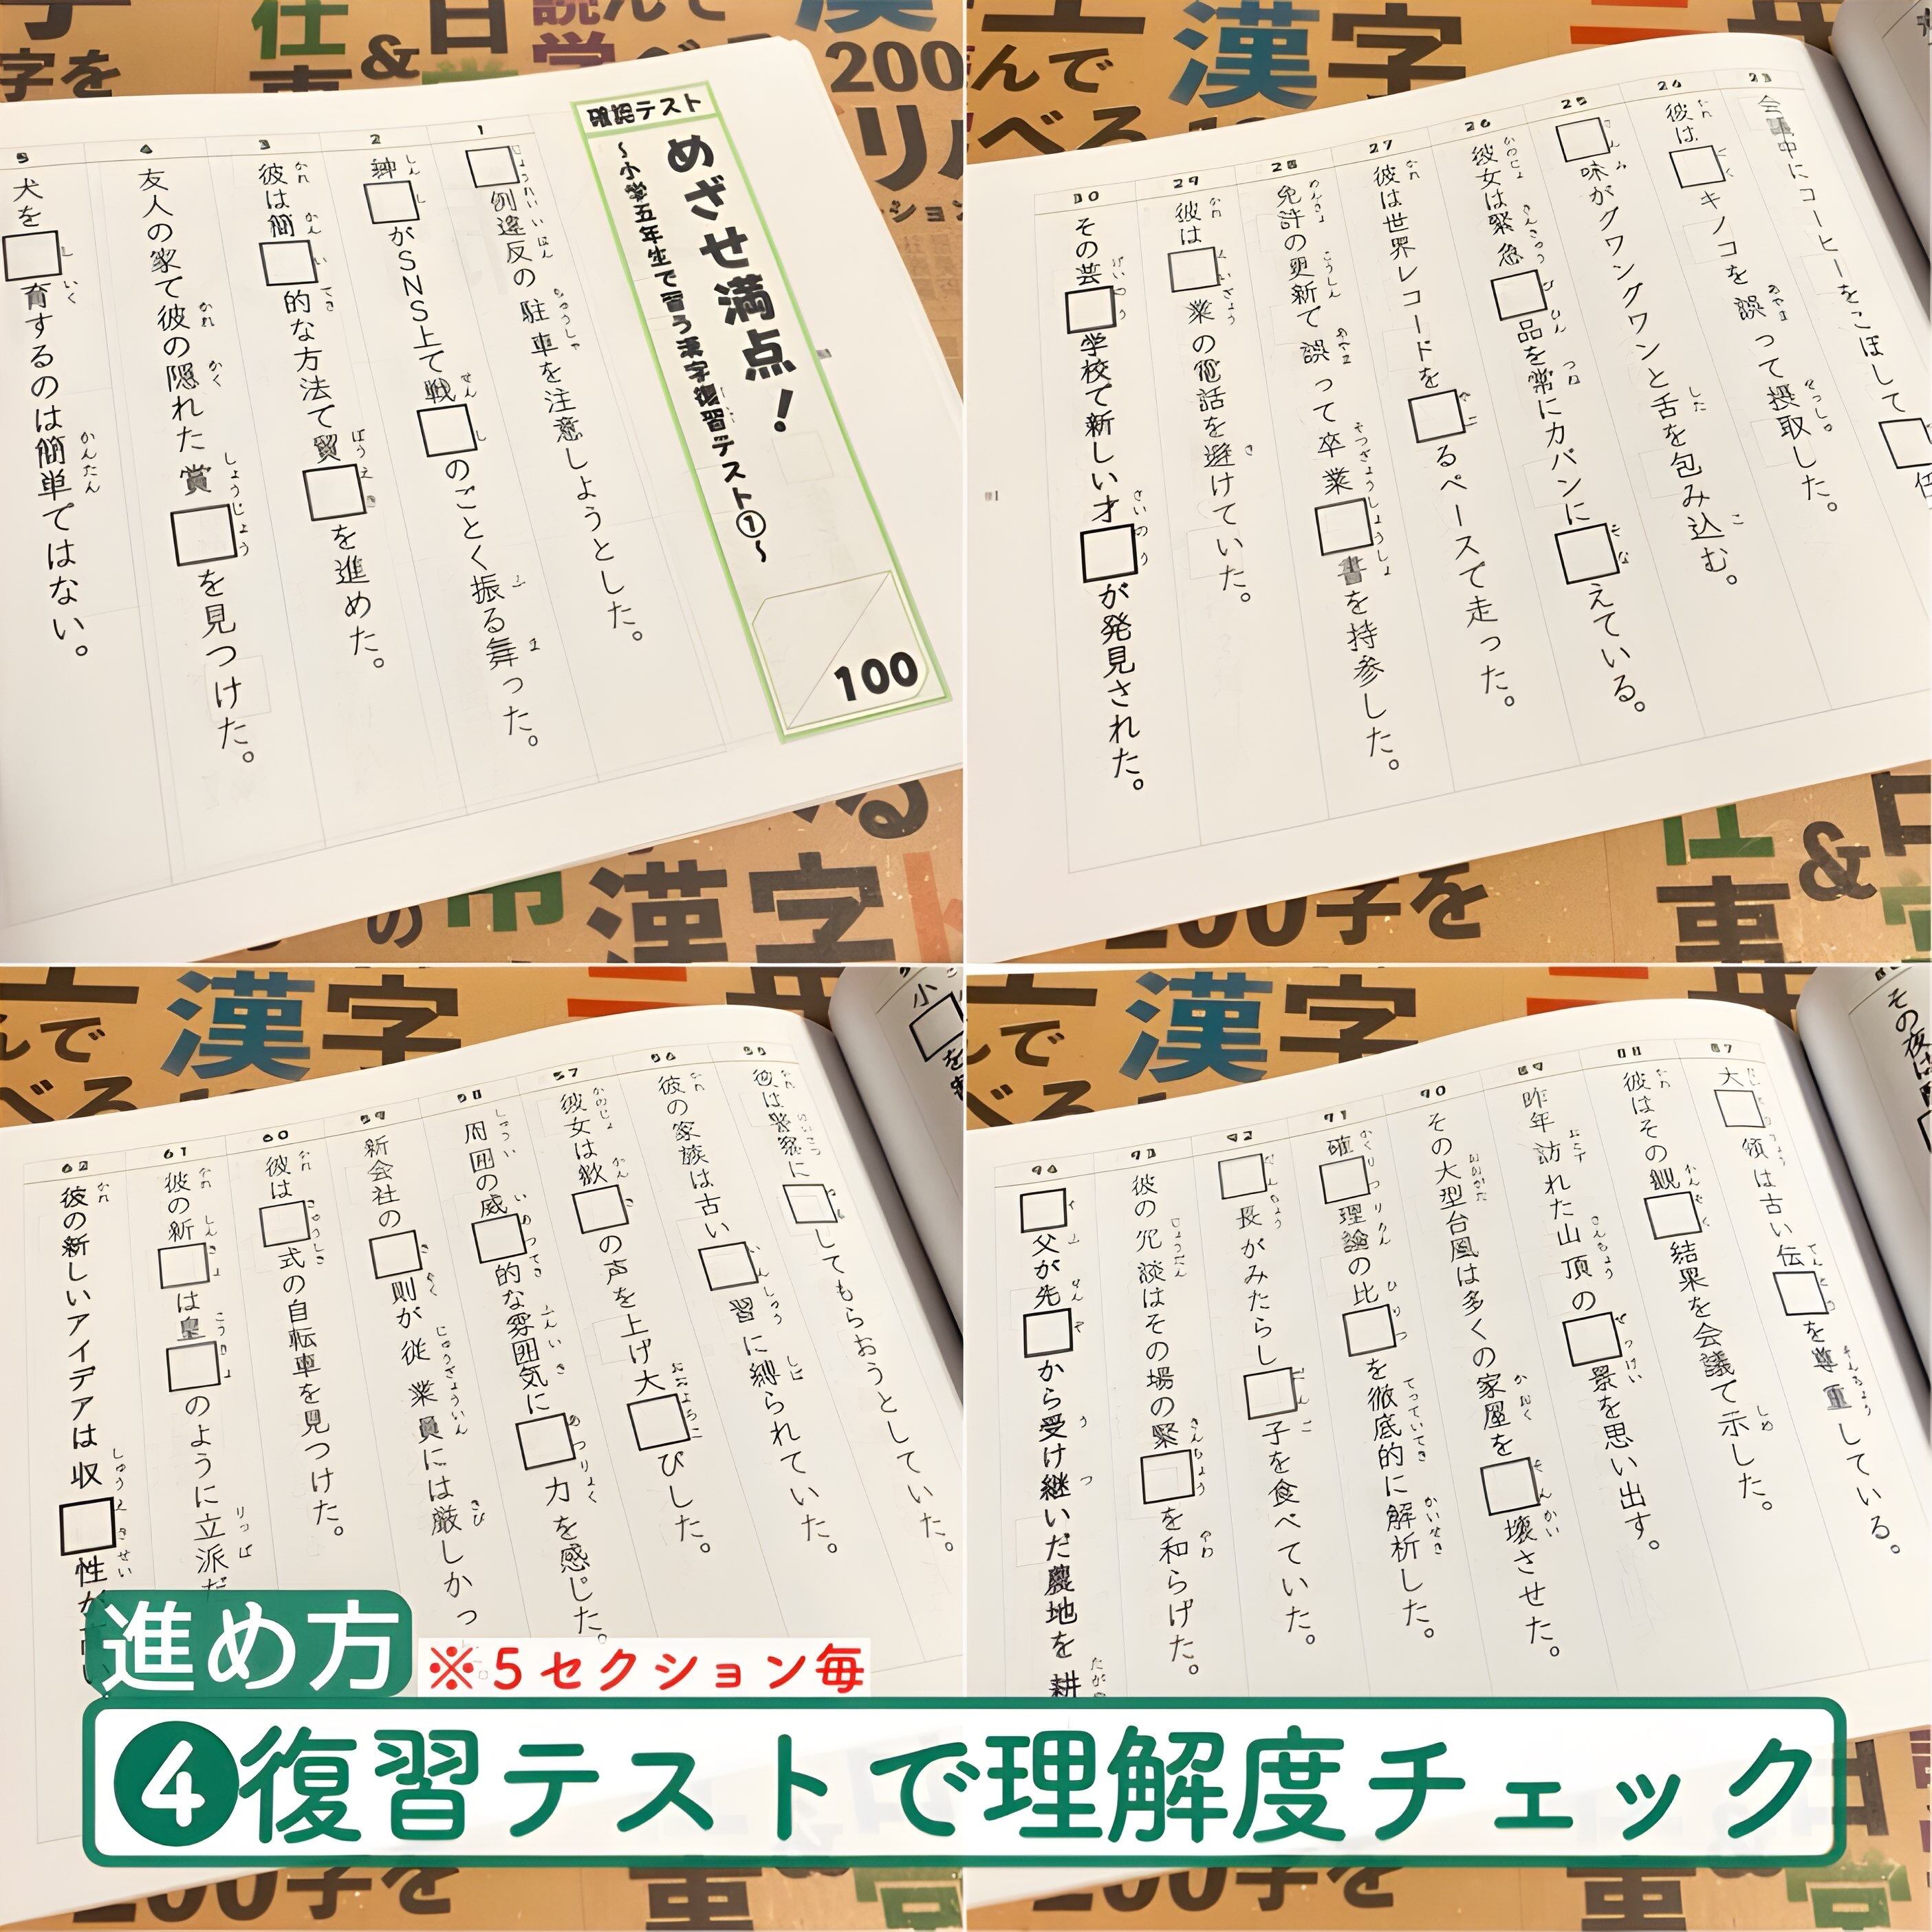 確認テスト
めざせ満点！
～小学五年生で習う漢字復習テスト①～
100
1
□例違反の駐車を注意しようとした。
2
紳□がSNS上で戦□のごとく振る舞った。
3
彼は簡□的な方法で貿□を進めた。
4
友人の家で彼の隠れた賞□を見つけた。
5
犬を□育するのは簡単ではない。
会車中にコーヒーをこぼして□
彼は□キノコを誤って摂取した。
25
□味がグワングワンと舌を包み込む。
26
彼女は緊急□品を常にカバンに□えている。
27
彼は世界レコードを□るペースで走った。
28
免許の更新で誤って卒業□書を持参した。
29
彼は□業の電話を避けていた。
30
その芸□学校で新しい才□が発見された。
彼は警察に□してもらおうとしていた。
56
彼の家族は古い□習に縛られていた。
57
彼女は歓□の声を上げ大□びした。
58
周囲の威□的な雰囲気に□力を感じた。
59
新会社の□則が従業員には厳しかっ
60
彼は□式の自転車を見つけた。
61
彼の新□は皇□のように立派だ
62
彼の新しいアイデアは収□性が
87
大□領は古い伝□を尊重している。
88
彼はその観□結果を会議で示した。
89
昨年訪れた山頂の□景を思い出す。
90
その大型台風は多くの家屋を□壊させた。
91
確□理論の比□を徹底的に解析した。
92
□長がみたらし□子を食べていた。
93
彼の冗談はその場の緊□を和らげた。
94
□父が先□から受け継いだ農地を耕
進め方
※5セクション毎
④復習テストで理解度チェック